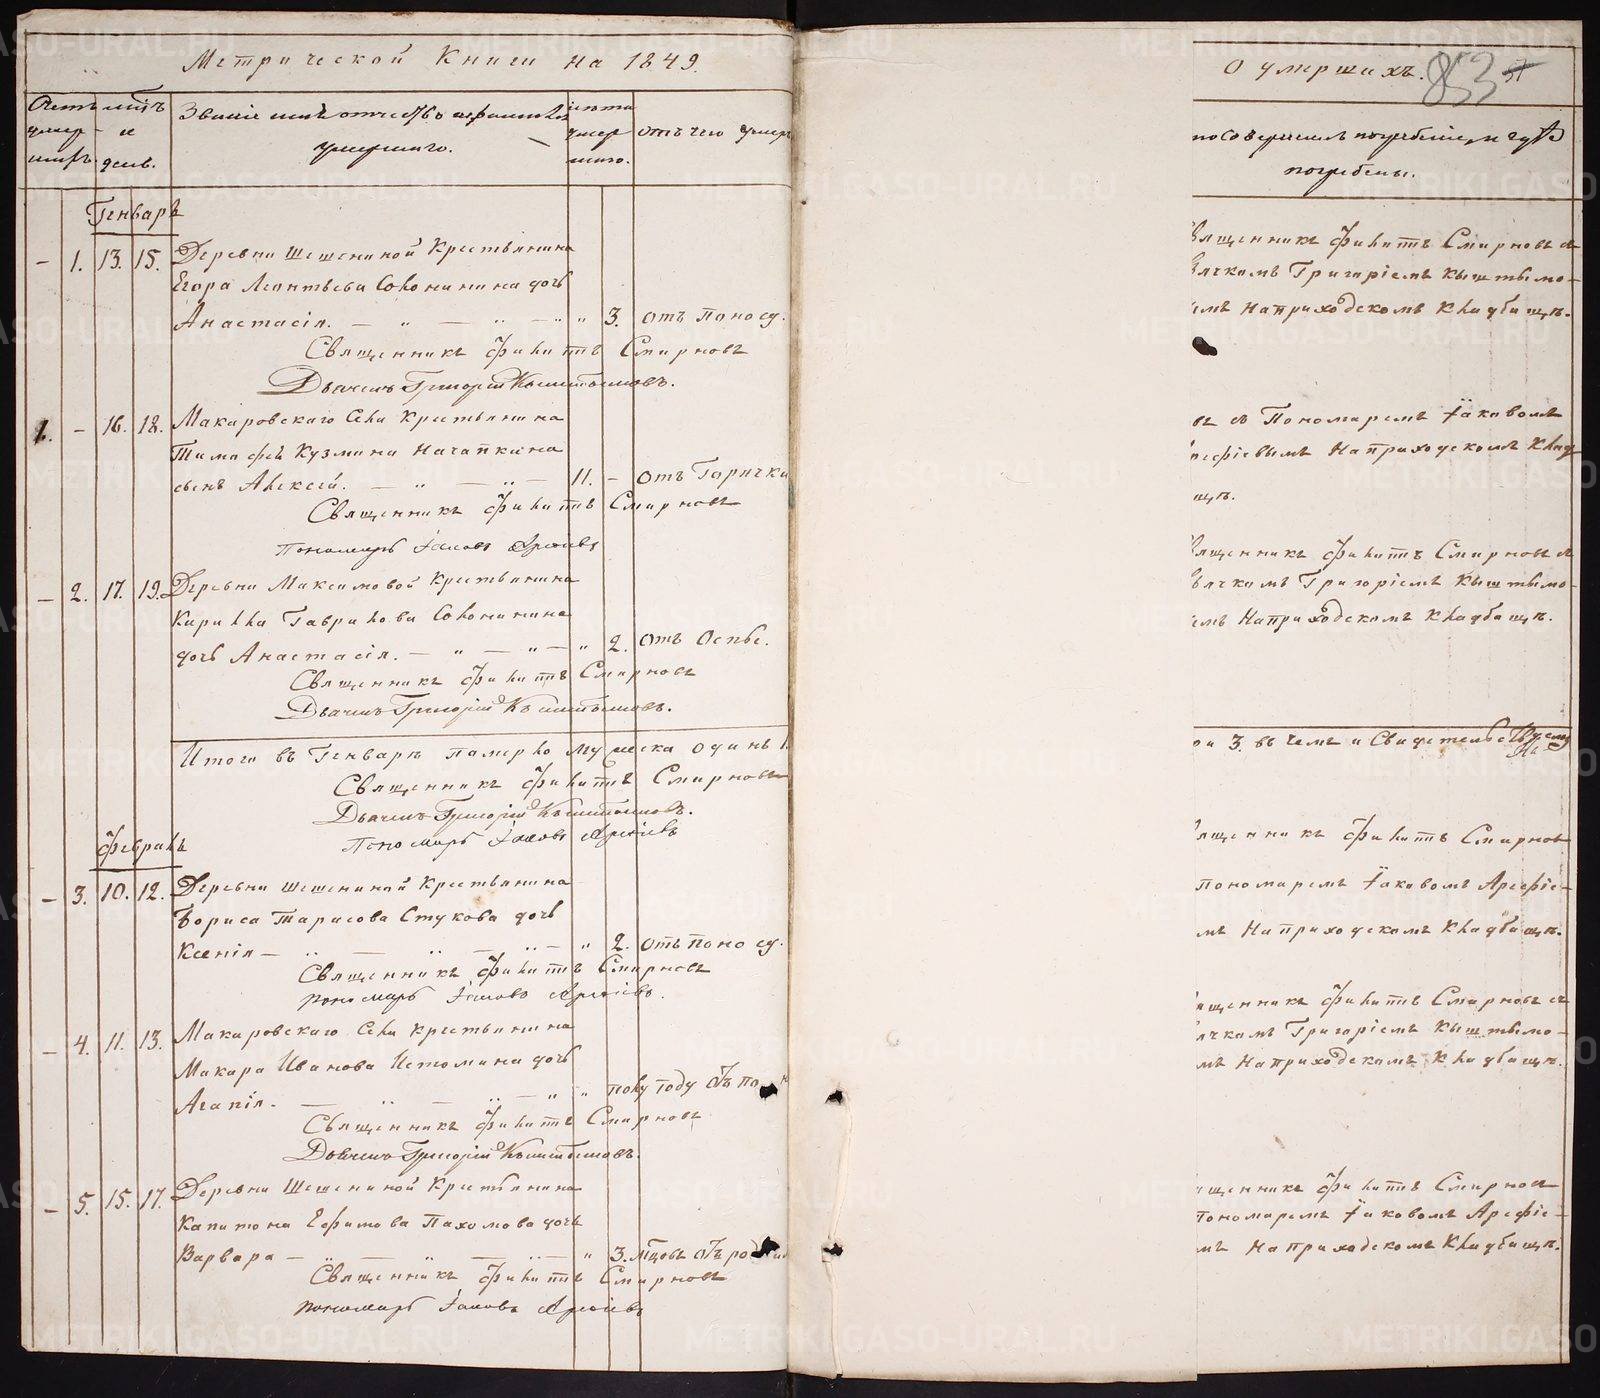 Метрической Книги на 1849.
Званіе имя отчество и фамилія
умершаго.
отъ чего умеръ
Генварь
1. 13. 15. Деревни Шешениной Крестьянина
Егора Леонтьева Соломинина дочь
Анастасія. — " — " — " " 3. отъ поносу.
Священникъ Филиппъ Смирновъ
Дьячекъ Григорій Кыштымовъ.
1. — 16. 18. Макаровскаго Села Крестьянина
Тимофея Кузмина Начапкина
сынъ Алексей. — " — " — 11. — отъ Горячки
Священникъ Филиппъ Смирновъ
Пономарь Іаковъ Арефіевъ
— 2. 17. 19. Деревни Максимовой Крестьянина
Кирилла Гаврилова Соломинина
дочь Анастасія. — " — " — " 2. отъ Оспы.
Священникъ Филиппъ Смирновъ
Дьячекъ Григорій Кыштымовъ.
Итого въ Генварѣ померло мужеска одинъ 1.
Священникъ Филиппъ Смирновъ
Дьячекъ Григорій Кыштымовъ.
Пономарь Іаковъ Арефіевъ
Февраль
— 3. 10. 12. Деревни Шешениной Крестьянина
Бориса Тарасова Стукова дочь
Ксенія — " — " — " — " 2. отъ поносу.
Священникъ Филиппъ Смирновъ
Пономарь Іаковъ Арефіевъ.
— 4. 11. 13. Макаровскаго Села Крестьянина
Макара Иванова Истомина дочь
Агапія. — " — " — " " полу году отъ
Священникъ Филиппъ Смирновъ
Дьячекъ Григорій Кыштымовъ.
— 5. 15. 17. Деревни Шешениной Крестьянина
Капитона Ефимова Пахомова дочь
Варвара — " — " — " — " 3. мцовъ отъ
Священникъ Филиппъ Смирновъ
Пономарь Іаковъ Арефіевъ
О умершихъ. 853
по совершалъ погребеніе, и гдѣ
погребены.
вященникъ Филиппъ Смирновъ съ
ячкомъ Григоріемъ Кыштымо-
мъ на приходскомъ кладбищѣ.
въ съ Пономаремъ Іаковомъ
рефіевымъ На приходскомъ клад
щѣ.
вященникъ Филиппъ Смирновъ съ
ячкомъ Григоріемъ Кыштымо-
мъ На приходскомъ кладбищѣ.
3. въ чемъ и Свидетельствуемъ
ященникъ Филиппъ Смирновъ
пономаремъ Іаковомъ Арефіе-
мъ На приходскомъ кладбищѣ.
щенникъ Филиппъ Смирновъ съ
ячкомъ Григоріемъ Кыштымо-
мъ На приходскомъ кладбищѣ.
щенникъ Филиппъ Смирновъ
Пономаремъ Іаковомъ Арефіе-
мъ На приходскомъ кладбищѣ.
METRIKI.GASO-URAL.RU